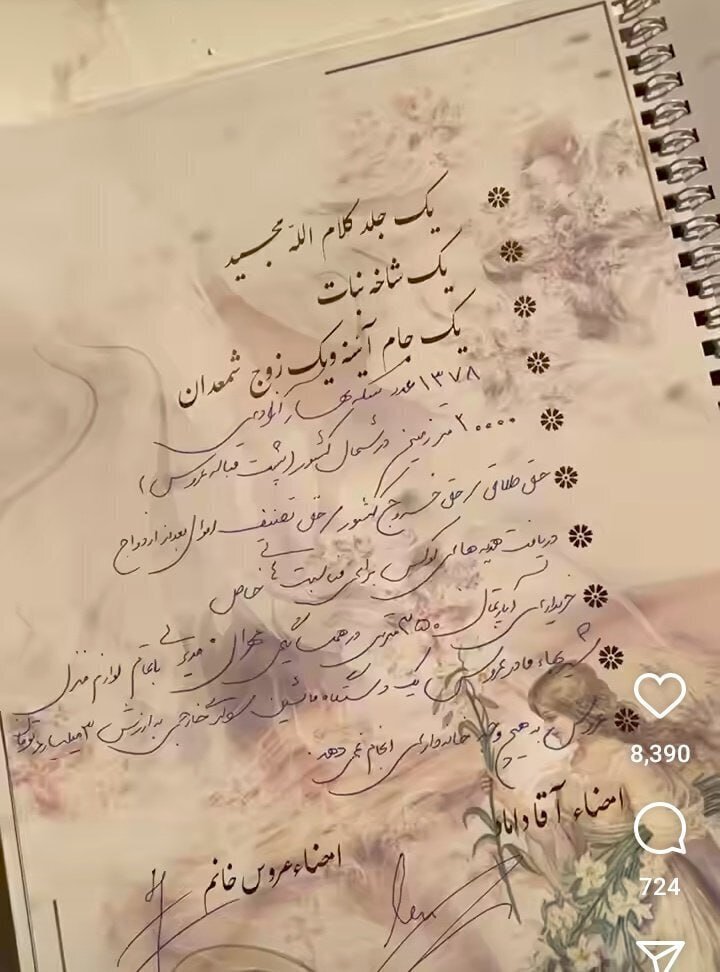 یک جلد کلام الله مجید
یک شاخه نبات
یک جام آئینه و یک زوج شمعدان
۱۳۷۸ عدد سکه بهار آزادی
۲۰۰۰۰ متر زمین در شمال کشور (پشت قباله عروس)
حق طلاق، حق خروج کشور، حق تصنیف اموال بعد از ازدواج
دریافت هدیه های لوکس برای مناسبت های خاص
خریداری آپارتمان ۳۵۰ متری در همسایگی با تمام لوازم منزل
شیربهاء مادر عروس یک دستگاه ماشین سواری خارجی به ارزش ۳ میلیارد تومان
عروس به هیچ وجه خانه‌داری انجام نمی دهد.
امضاء آقا داماد
امضاء عروس خانم
8,390
724